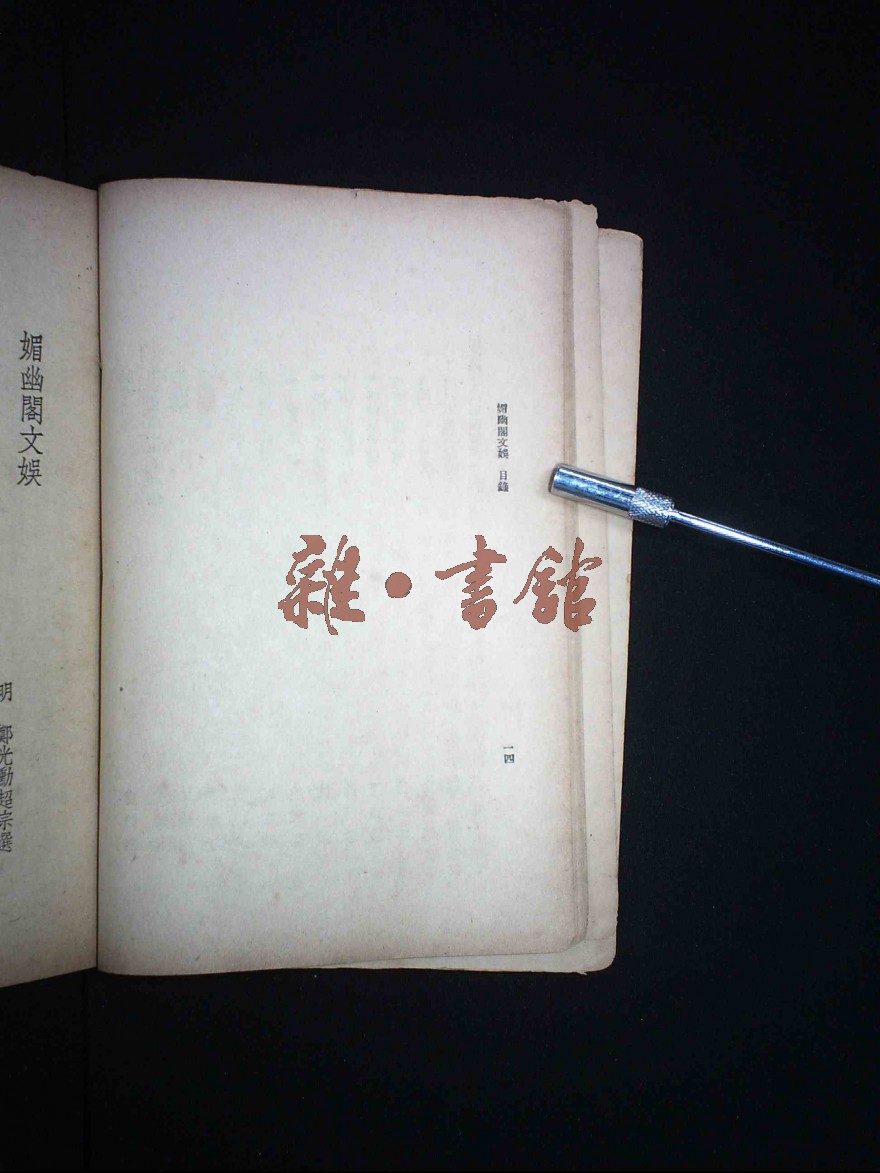 媚幽閣文娛 目錄
一四
雜·書館
媚幽閣文娛
明 鄭光勳超宗選